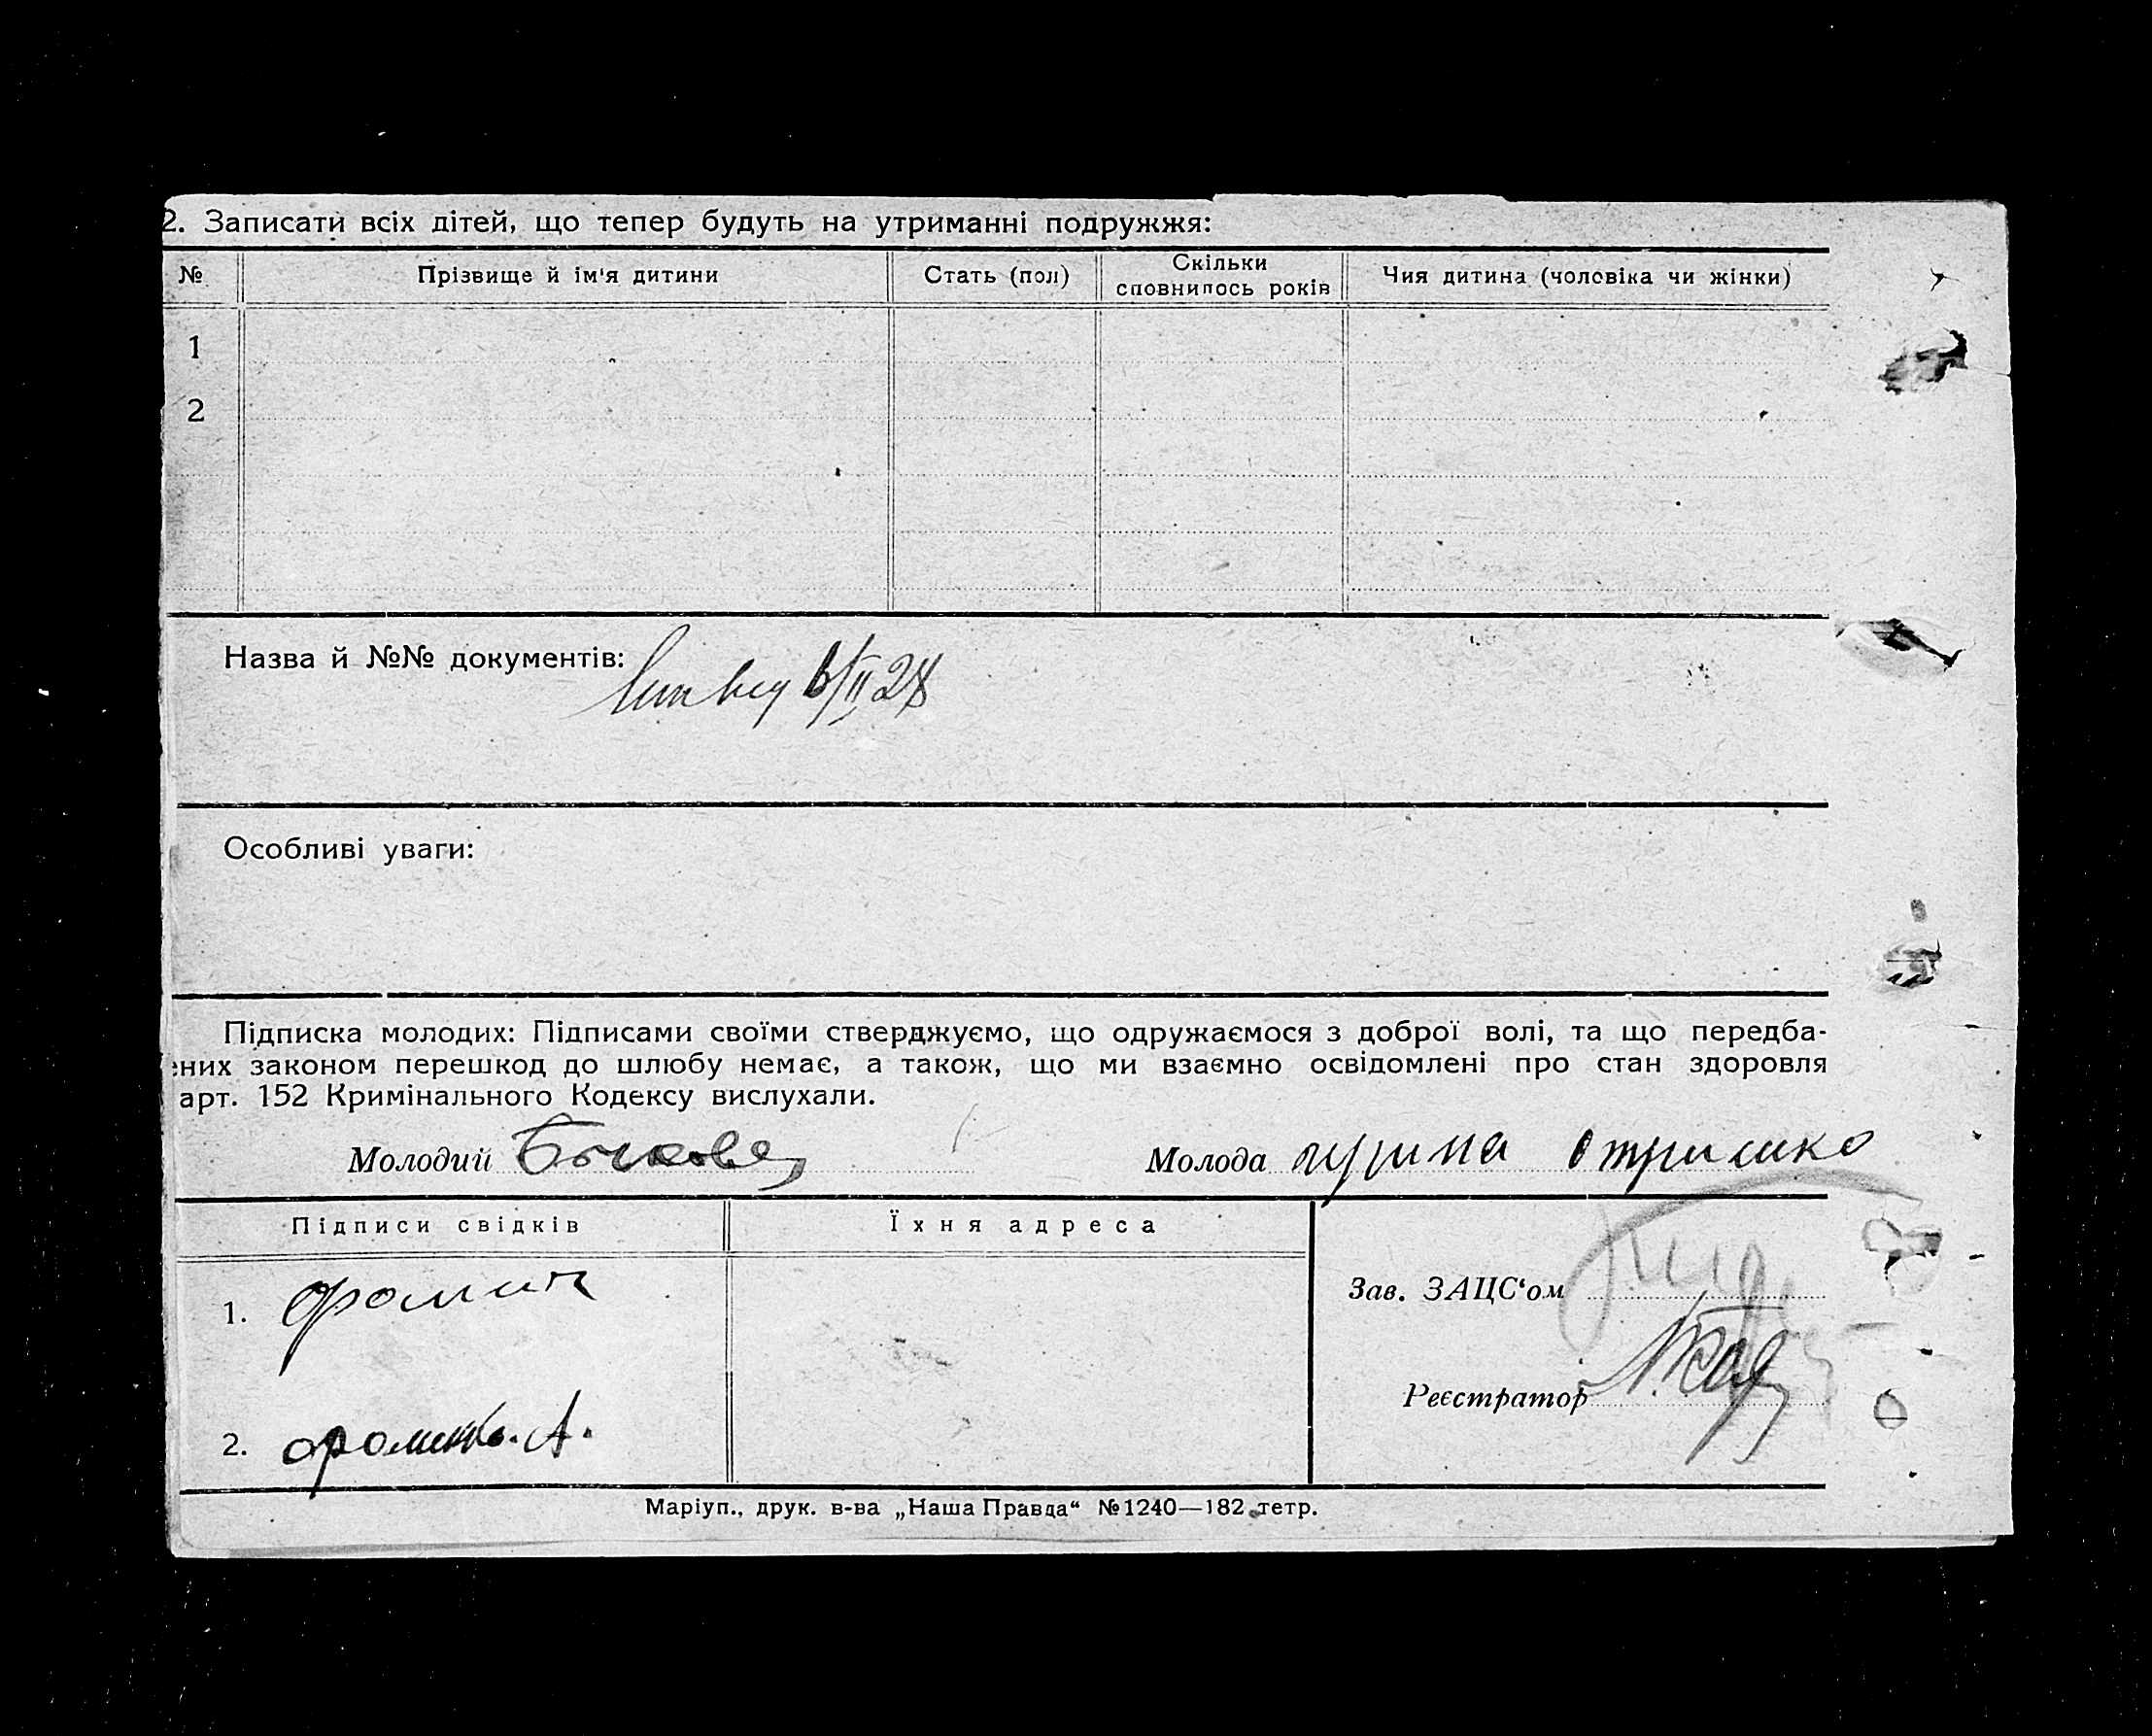 2. Записати всіх дітей, що тепер будуть на утриманні подружжя:
№ Прізвище й ім'я дитини Стать (пол) Скільки сповнилось років Чия дитина (чоловіка чи жінки)
1
2
Назва й №№ документів: 6/II 28
Особливі уваги:
Підписка молодих: Підписами своїми стверджуємо, що одружаємося з доброї волі, та що передба-
ених законом перешкод до шлюбу немає, а також, що ми взаємно освідомлені про стан здоровля
арт. 152 Кримінального Кодексу вислухали.
Молодий Молода
Підписи свідків Їхня адреса
Зав. ЗАЦС'ом
1. Фомин
Реєстратор
2. А.
Маріуп., друк. в-ва „Наша Правда“ №1240—182 тетр.